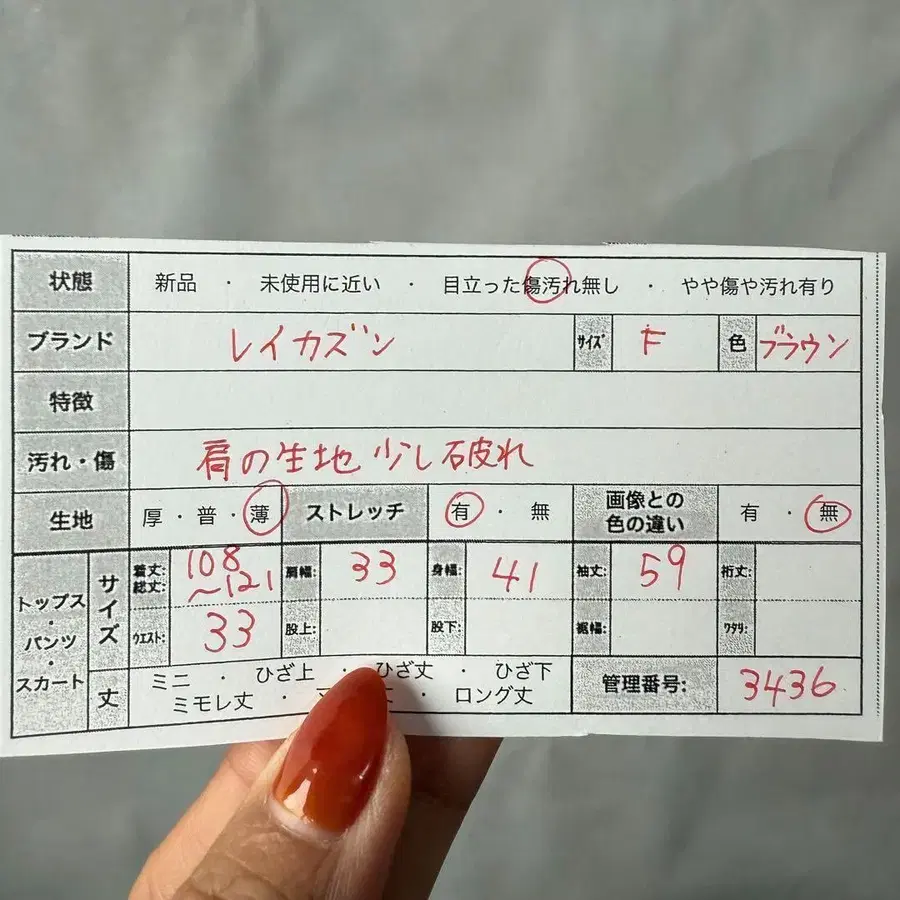 状態 新品 ・ 未使用に近い ・ 目立った傷汚れ無し ・ やや傷や汚れ有り
ブランド レイカズン サイズ F 色 ブラウン
特徴
汚れ・傷 肩の生地 少し破れ
生地 厚・普・薄 ストレッチ 有・無 画像との色の違い 有・無
トップス・パンツ・スカート サイズ 着丈: 総丈: 108～121 肩幅: 33 身幅: 41 袖丈: 59 裄丈:
ウエスト: 33 股上: 股下: 裾幅: ワタリ:
丈 ミニ ・ ひざ上 ・ ひざ丈 ・ ひざ下
ミモレ丈 ・ ・ ロング丈 管理番号: 3436